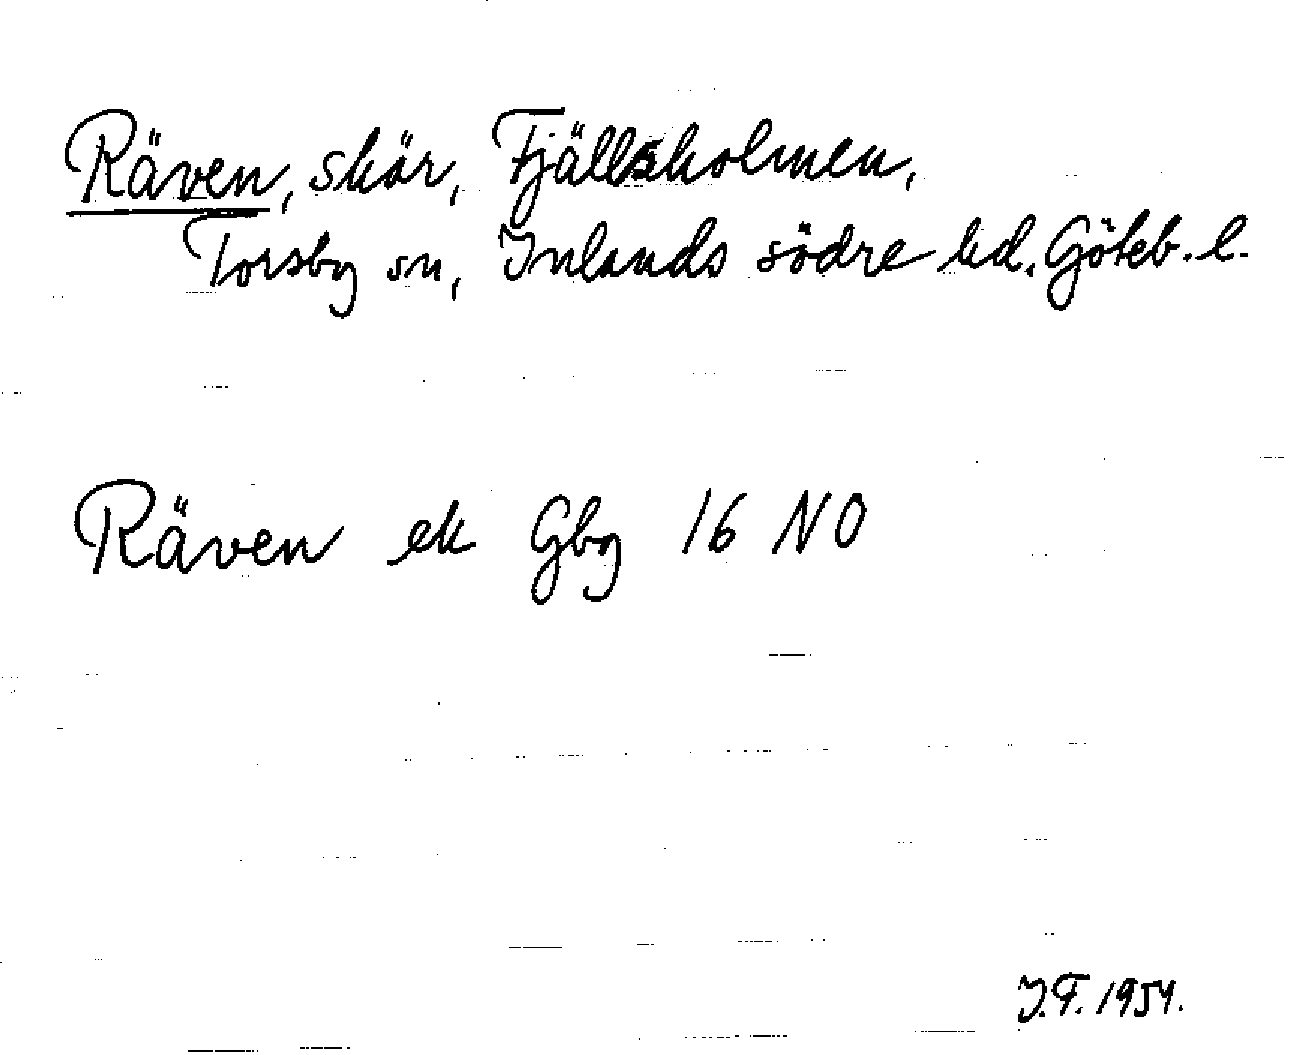 Räven, skär, Fjällsholmen,
Torsby sn, Inlands södre hd, Göteb. l.
Räven ek Gbg 16 NO
I.F. 1954.